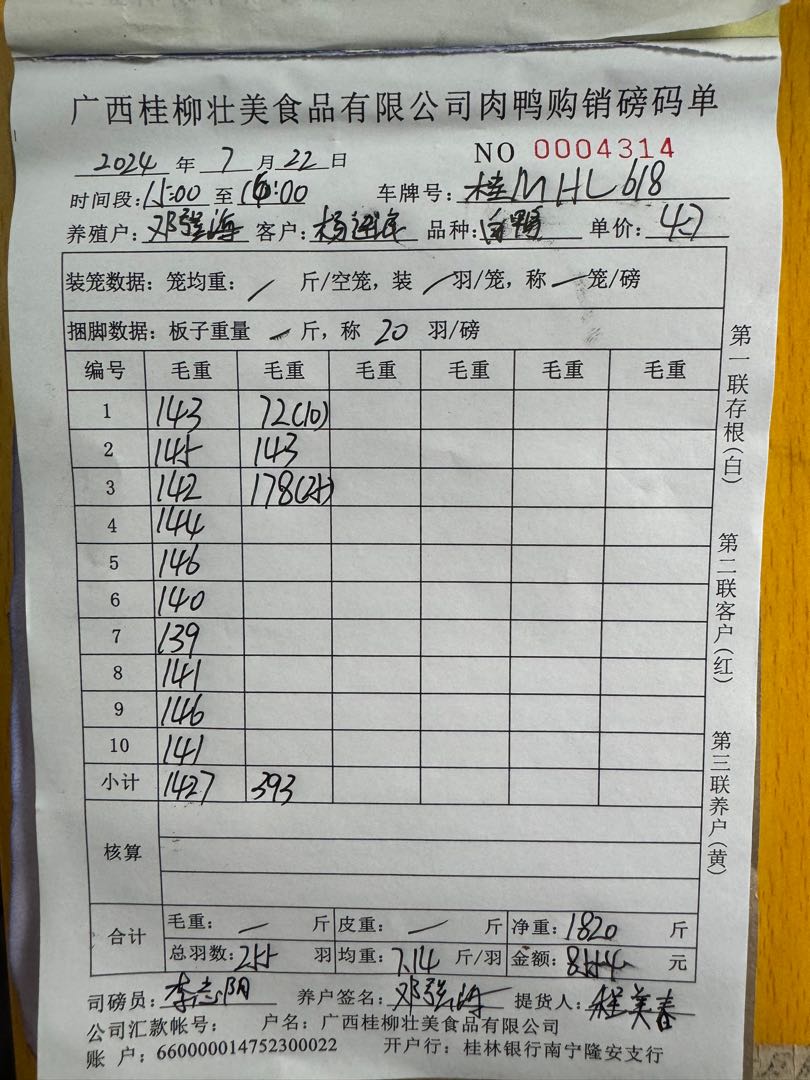 广西桂柳壮美食品有限公司肉鸭购销磅码单
2024年7月22日 NO 0004314
时间段:15:00至16:00 车牌号:桂MHL618
养殖户:邓强海 客户: 品种:白鸭 单价:4.7
装笼数据:笼均重:/斤/空笼,装/羽/笼,称一笼/磅
捆脚数据:板子重量一斤,称20羽/磅
编号 毛重 毛重 毛重 毛重 毛重 毛重
1 143 72(10)
2 145 143
3 142 178(25)
4 144
5 146
6 140
7 139
8 141
9 146
10 141
小计 1427 393
核算
合计 毛重:一斤 皮重:一斤 净重:1820斤
总羽数:255羽 均重:7.14斤/羽 金额:8554元
司磅员:李志阴 养户签名:邓强海 提货人:程美春
公司汇款帐号: 户名:广西桂柳壮美食品有限公司
账户:660000014752300022 开户行:桂林银行南宁隆安支行
第一联存根(白)
第二联客户(红)
第三联养户(黄)